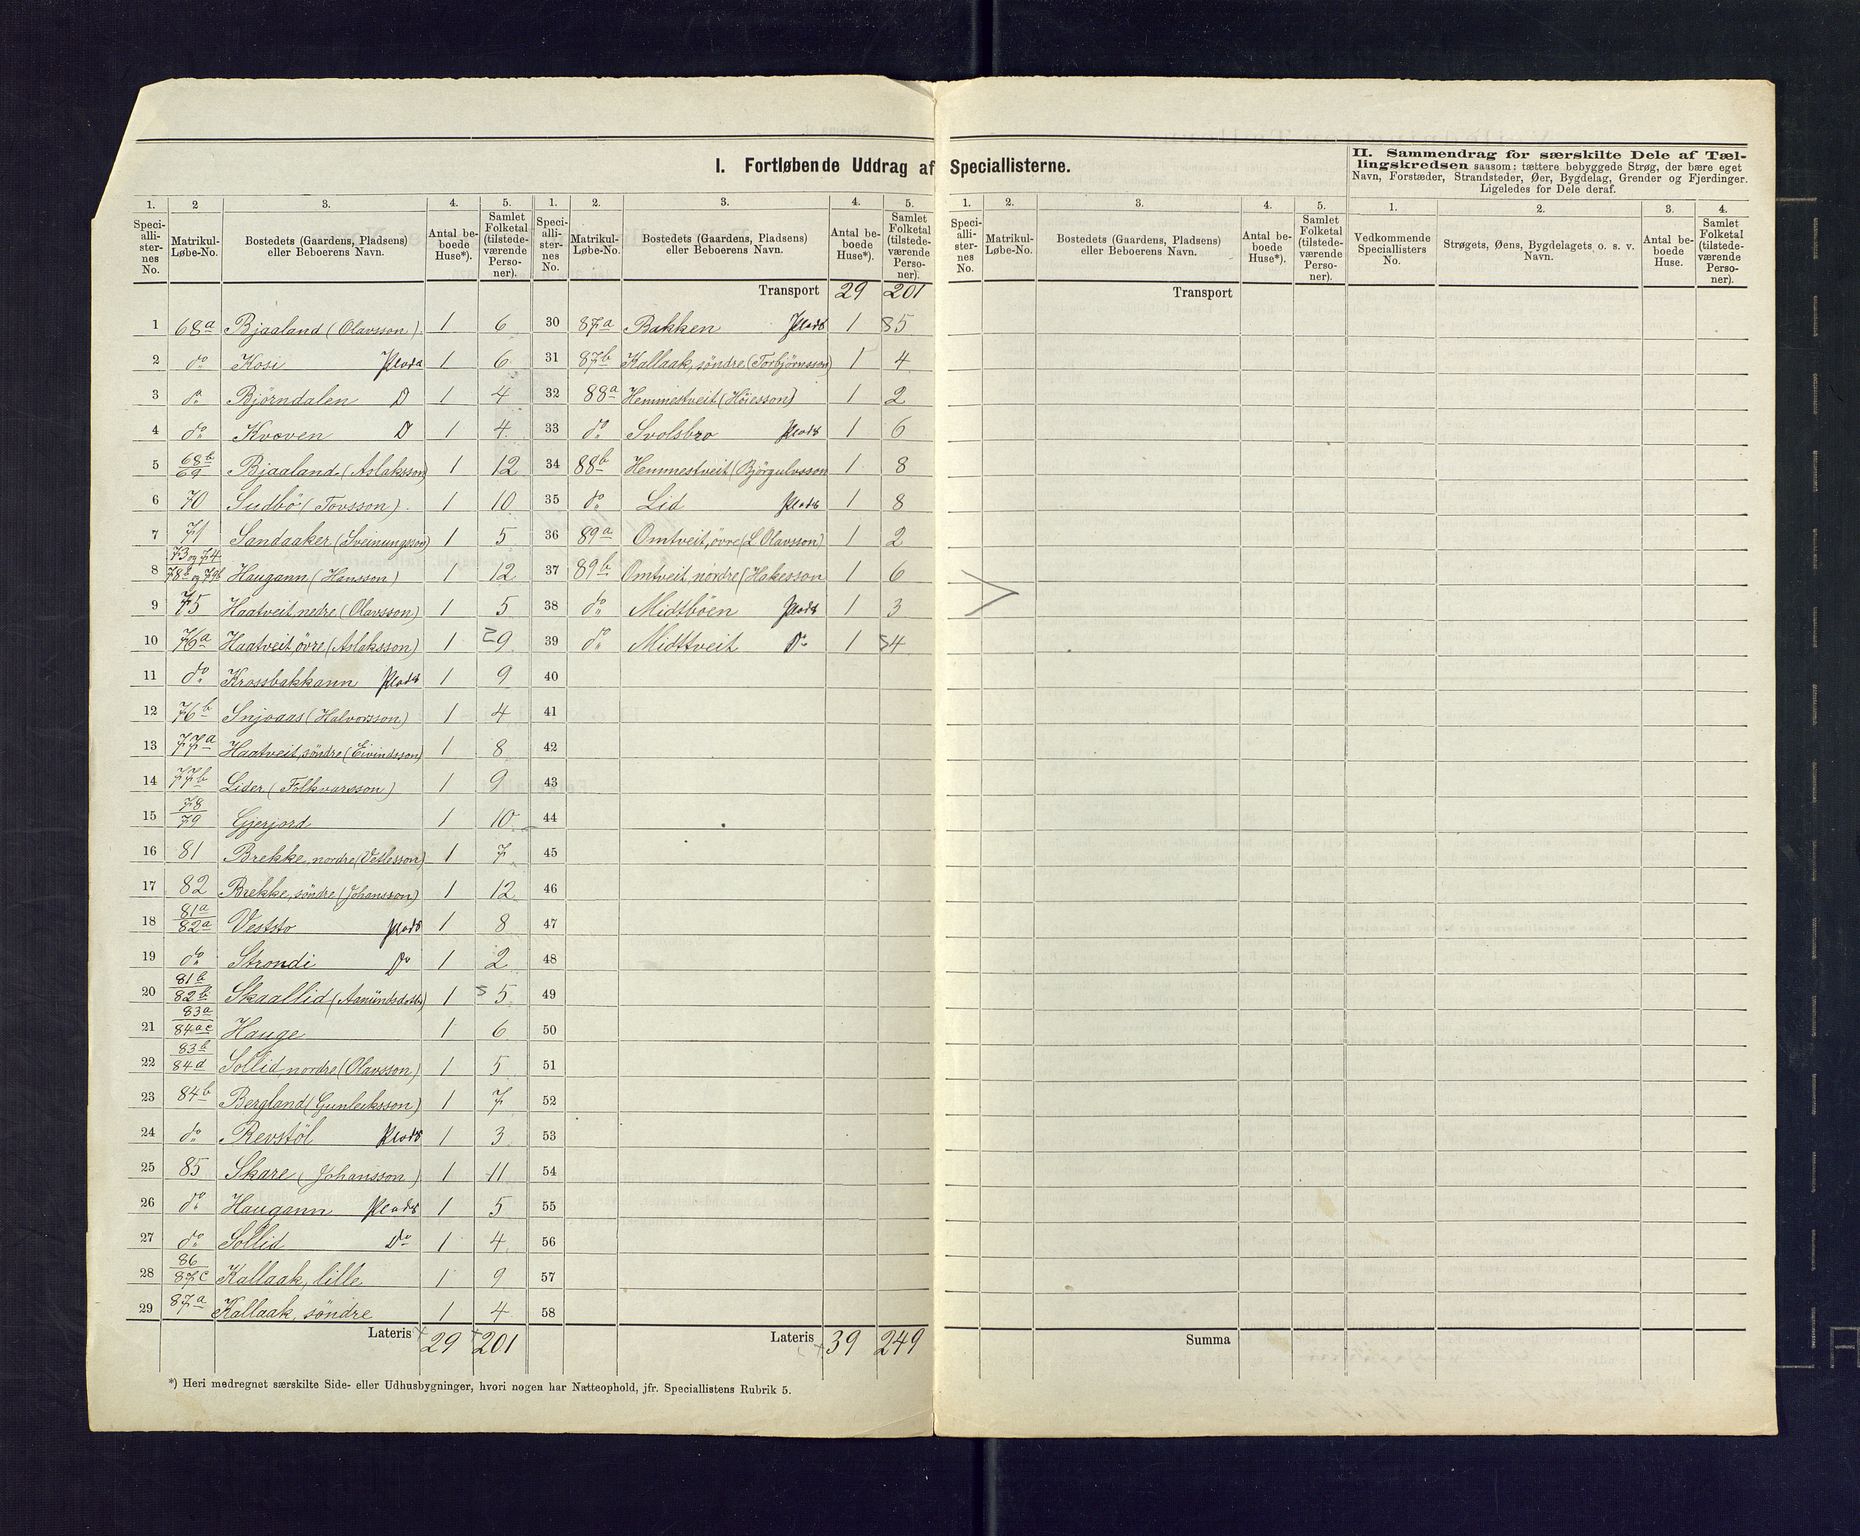 I. Fortløbende Uddrag af Speciallisterne.
II. Sammendrag for særskilte Dele af Tæl-
lingskredsen saasom: tættere bebyggede Strøg, der bære eget
Navn, Forstæder, Strandsteder, Øer, Bygdelag, Grender og Fjerdinger.
Ligeledes for Dele deraf.
1. 2 3. 4. 5. 1. 2. 3. 4. 5. 1. 2. 3. 4. 5. 1. 2. 3. 4.
Speciallisternes No. Matrikul-Løbe-No. Bostedets (Gaardens, Pladsens) eller Beboerens Navn. Antal beboede Huse*). Samlet Folketal (tilstedeværende Personer).
Speciallisternes No. Matrikul-Løbe-No. Bostedets (Gaardens, Pladsens) eller Beboerens Navn. Antal beboede Huse*). Samlet Folketal (tilstedeværende Personer).
Speciallisternes No. Matrikul-Løbe-No. Bostedets (Gaardens, Pladsens) eller Beboerens Navn. Antal beboede Huse*). Samlet Folketal (tilstedeværende Personer).
Vedkommende Speciallisters No. Strøgets, Øens, Bygdelagets o. s. v. Navn. Antal beboede Huse. Samlet Folketal (tilstedeværende Personer).
1 68a Bjaaland (Olavsson). 1 6
2 do Kosi Plads 1 6
3 do Bjørndalen D 1 4
4 do Kvæven D 1 4
5 68b/69 Bjaaland (Aslaksson) 1 12
6 70 Sudbö (Tovsson). 1 10
7 71 Sandaaker (Sveinungson) 1 5
8 73 og 74 78b og 79b Haugann (Hansson) 1 12
9 75 Haatveit, nedre (Olavsson) 1 5
10 76a Haatveit, övre (Aslaksson) 1 9
11 do Krossbakkann Plads 1 9
12 76b Snjoaas (Halvorsson) 1 4
13 77a Haatveit, söndre (Eivindsson) 1 8
14 77b Lider (Folkvarsson) 1 9
15 78/79 Gjerjord 1 10
16 81 Brekke, nordre (Vetlesson) 1 7
17 82 Brekke, söndre (Johansson) 1 12
18 81a/82a Veststo Plads 1 8
19 do Strondi Do 1 2
20 81b/82b Skaallid (Aamundsdotter) 1 5
21 83a/84ac Hauge 1 6
22 83b/84d Sollid, nordre (Olavsson) 1 5
23 84b Bergland (Gunleiksson) 1 7
24 do Revstöl Plads 1 3
25 85 Skare (Johansson) 1 11
26 do Haugann Plads 1 5
27 do Sollid Do 1 4
28 86/87c Kallaak, lille 1 9
29 87a Kallaak, söndre 1 4
Lateris 29 201
Transport 29 201
30 87a Bakken Plads 1 5
31 87b Kallaak, söndre (Torbjörnsson) 1 4
32 88a Hemmestveit (Höiesson) 1 2
33 do Svolsbro Plads 1 6
34 88b Hemmestveit (Björgulvsson 1 8
35 do Lid Plads 1 8
36 89a Omtveit, övre (L Olavsson) 1 2
37 89b Omtveit, nordre (Hakesson 1 6
38 do Midtböen Plads 1 3
39 do Midttveit Do 1 4
40
41
42
43
44
45
46
47
48
49
50
51
52
53
54
55
56
57
58
Lateris 39 249
*) Heri medregnet særskilte Side- eller Udhusbygninger, hvori nogen har Natteophold, jfr. Speciallistens Rubrik 5.
Transport
Summa